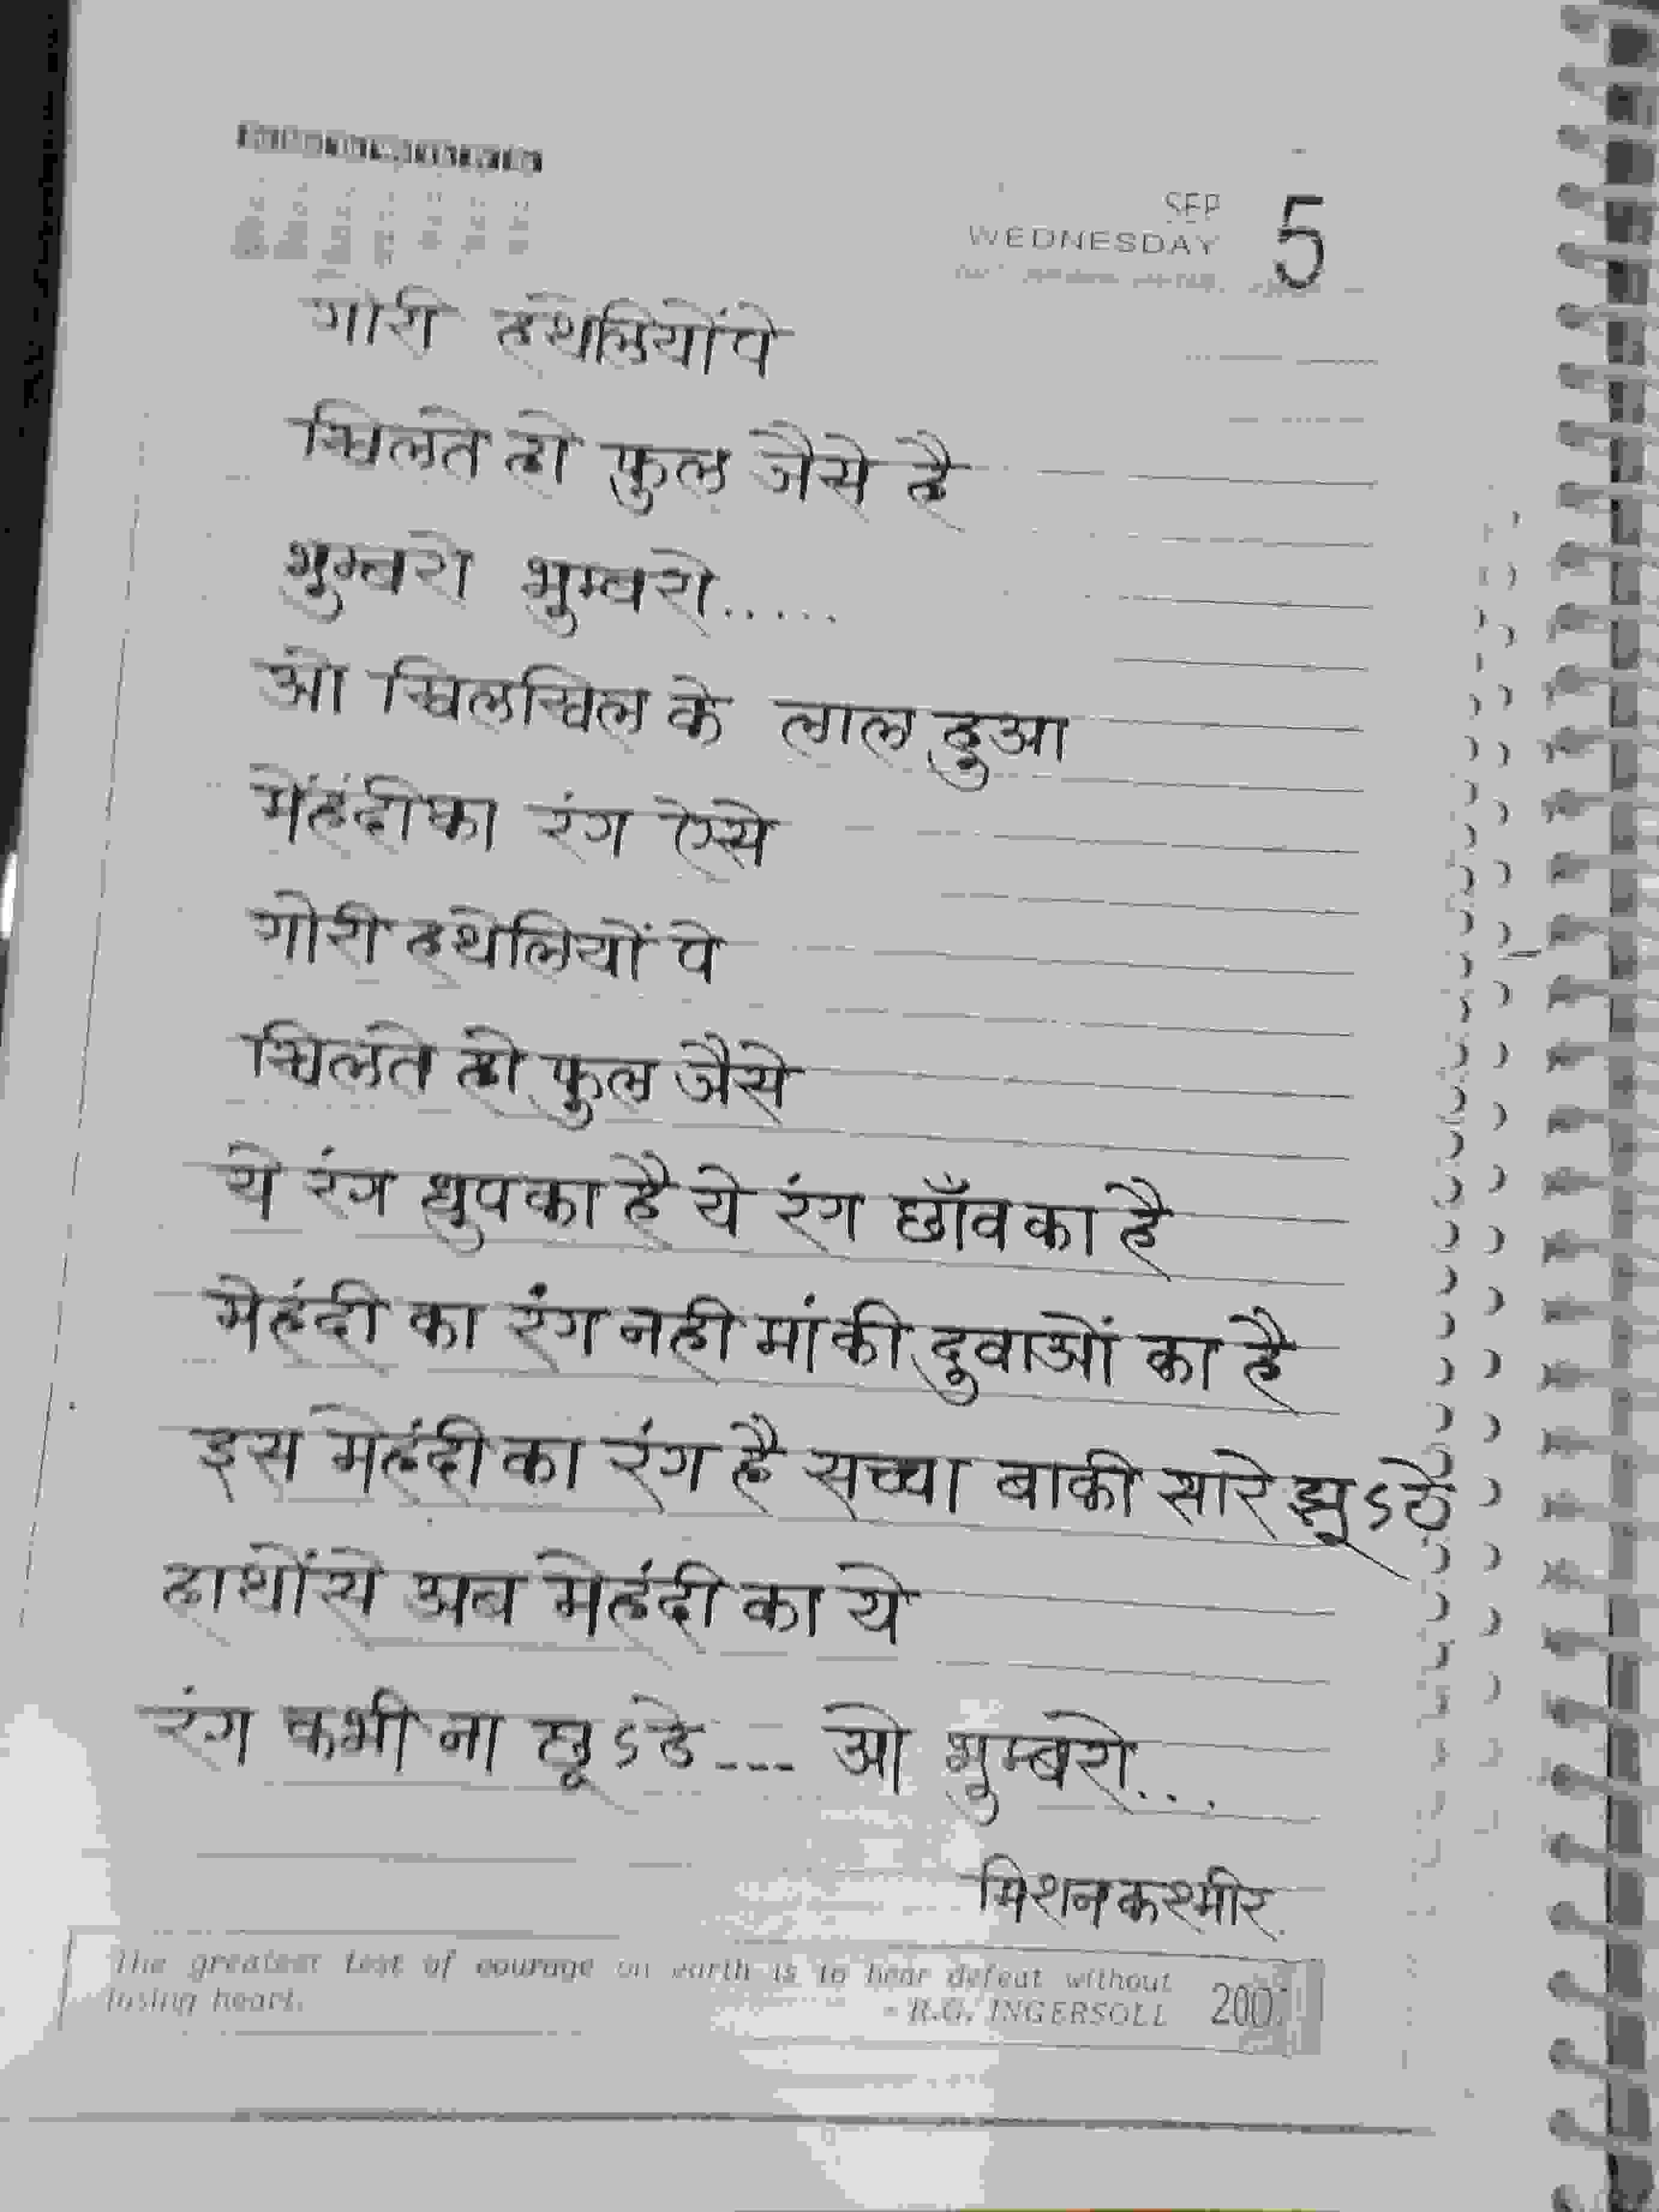 SEP
WEDNESDAY 5
गोरी हथेलियोंपे
खिलते हो फुल जैसे है
भुम्बरो भुम्बरो.....
ओ खिलखिल के लाल हुआ
मेहंदीका रंग ऐसे
गोरी हथेलियों पे
खिलते हो फुल जैसे
ये रंग धुपका है ये रंग छाँव का है
मेहंदी का रंग नही मां की दुवाओं का है
इस मेहंदी का रंग है सच्चा बाकी सारे झुऽठे
हाथोंसे अब मेहंदी का ये
रंग कभी ना छूऽटे --- ओ भुम्बरो...
मिशन कश्मीर
The greatest test of courage on earth is to bear defeat without
losing heart.
- R.G. INGERSOLL